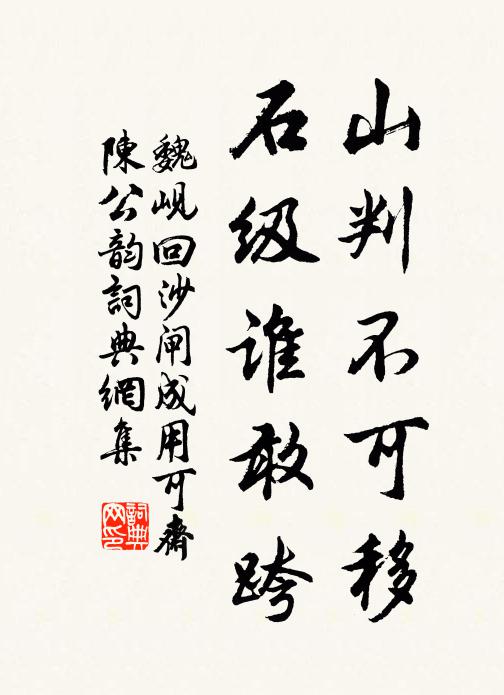 山判不可移
石级谁敢跨
魏岘回沙闸成用可斋
陳公韵詞典網集
詞典网印